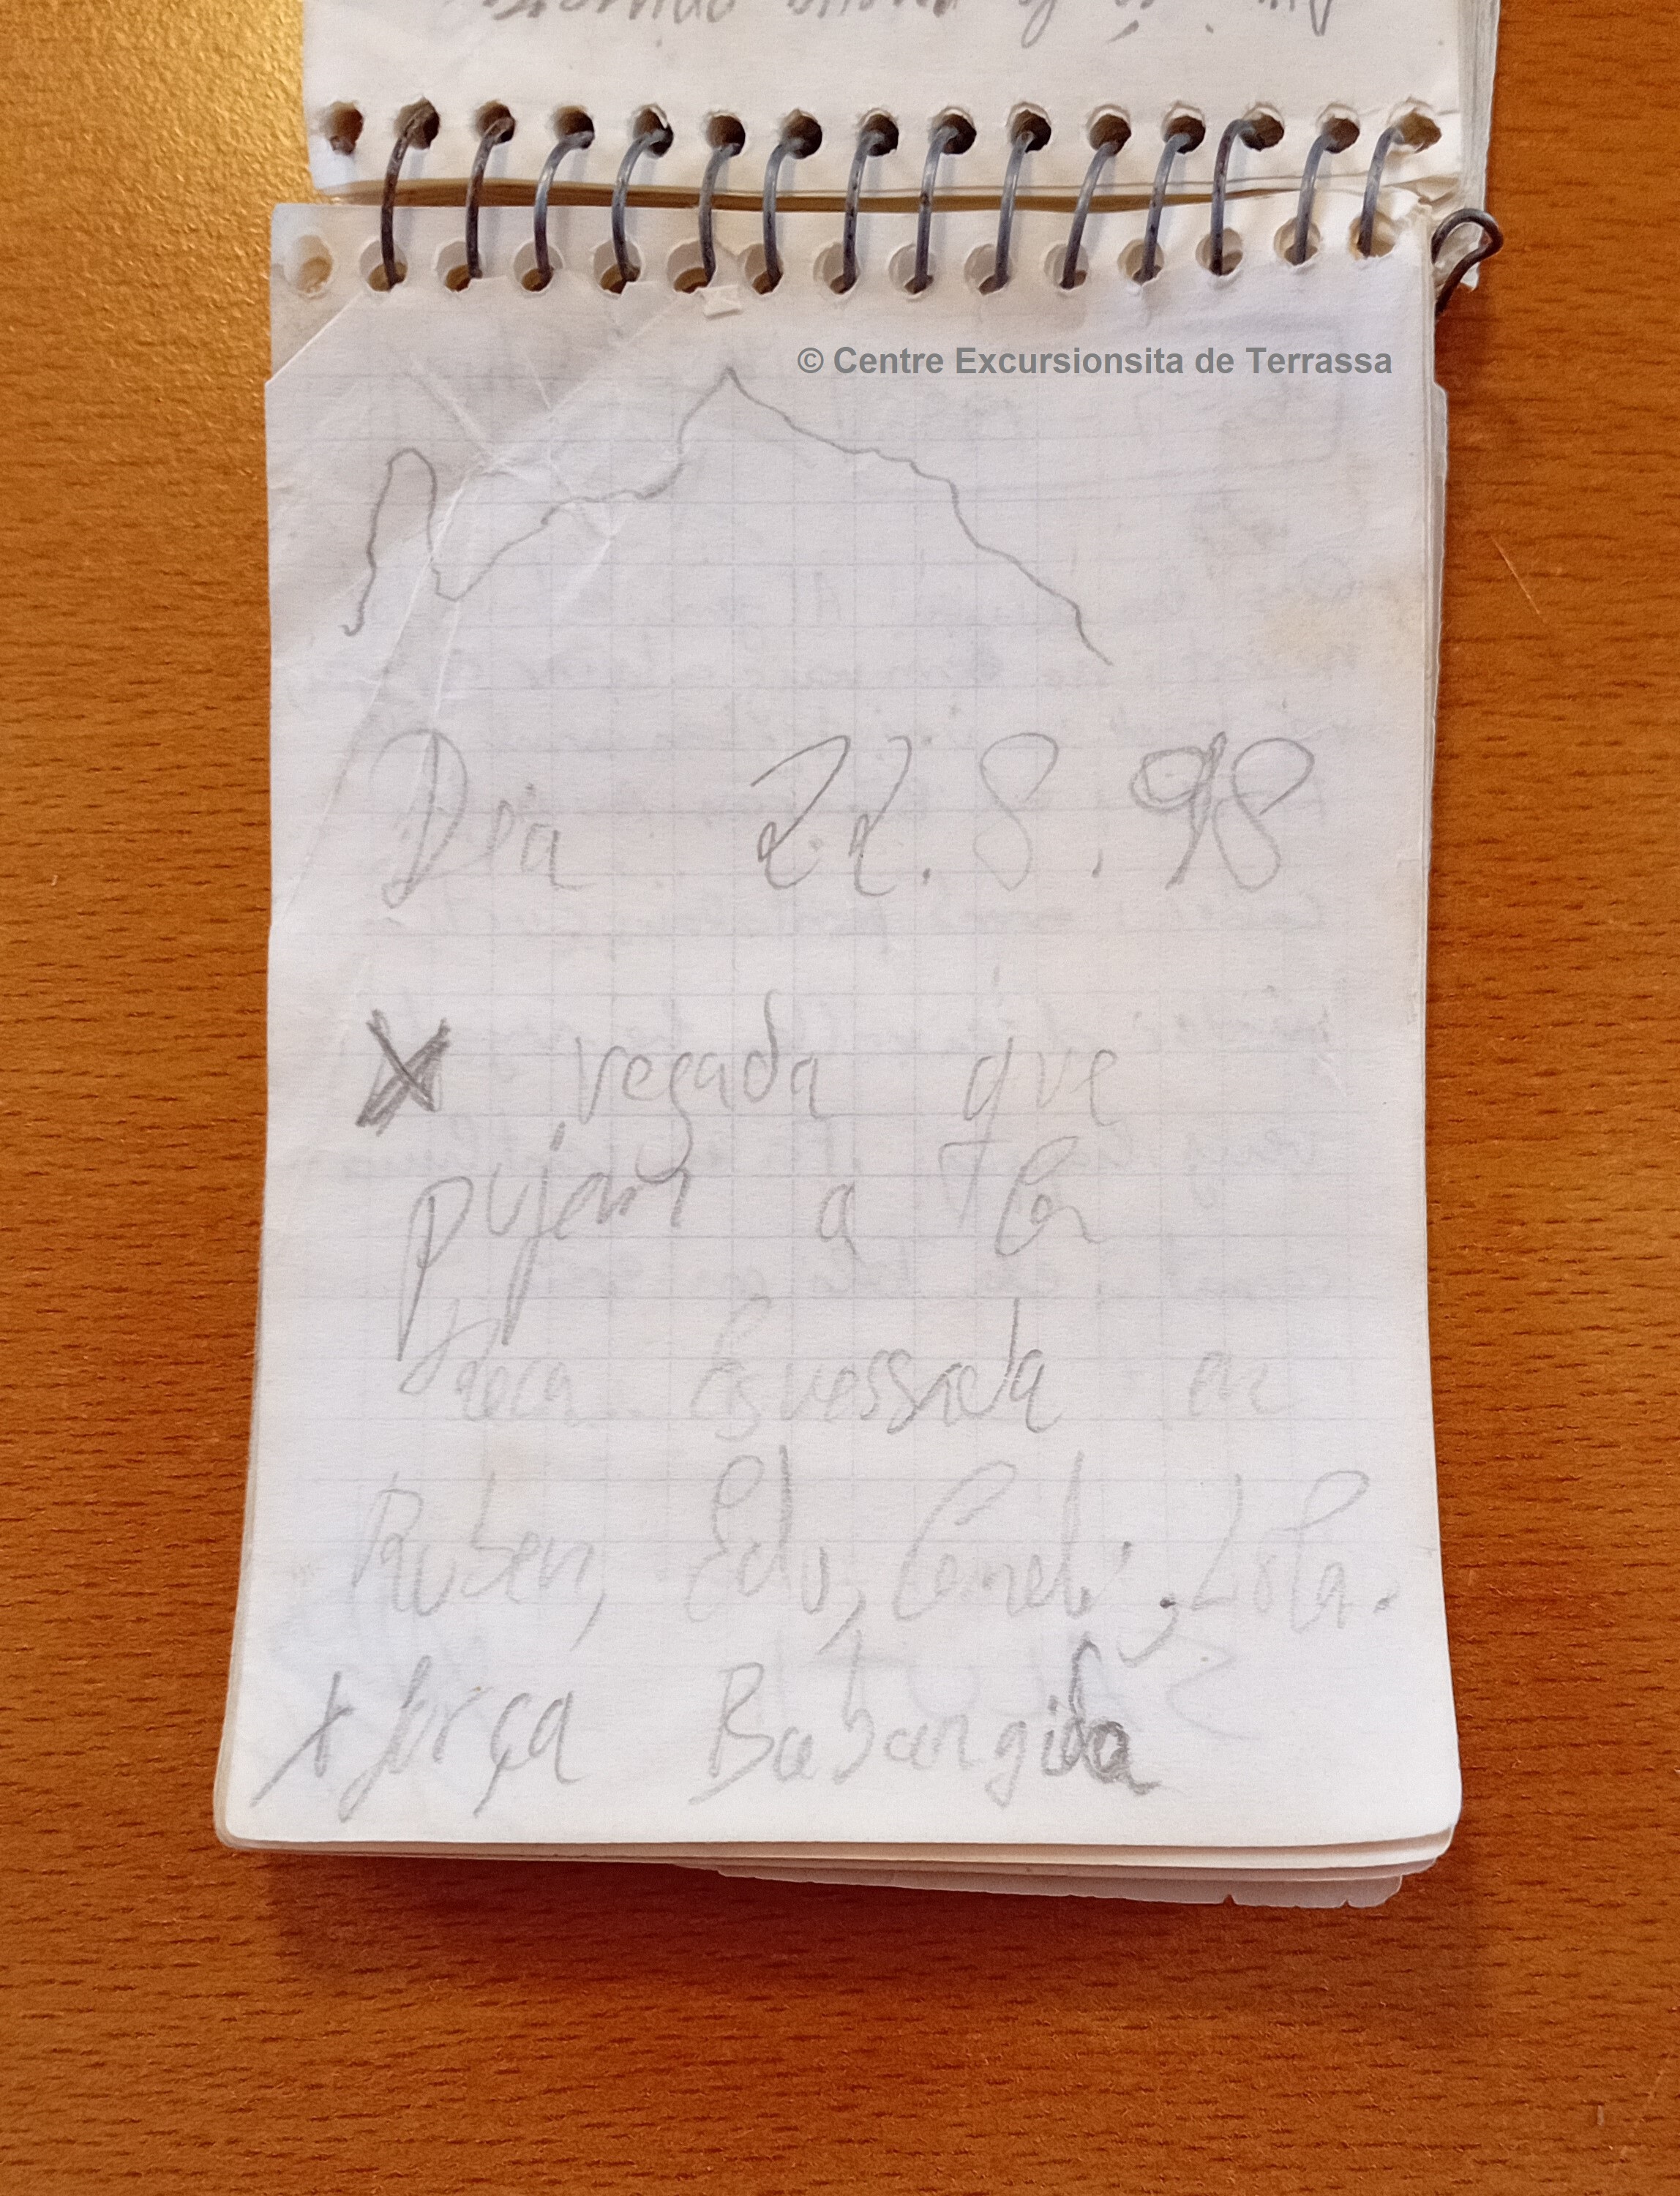 © Centre Excursionsita de Terrassa
Dia 22.8.98
X vegada que
pujem a la
Roca Esvessada en
Ruben, Edu, Coneli, Lola.
+ força Babangida